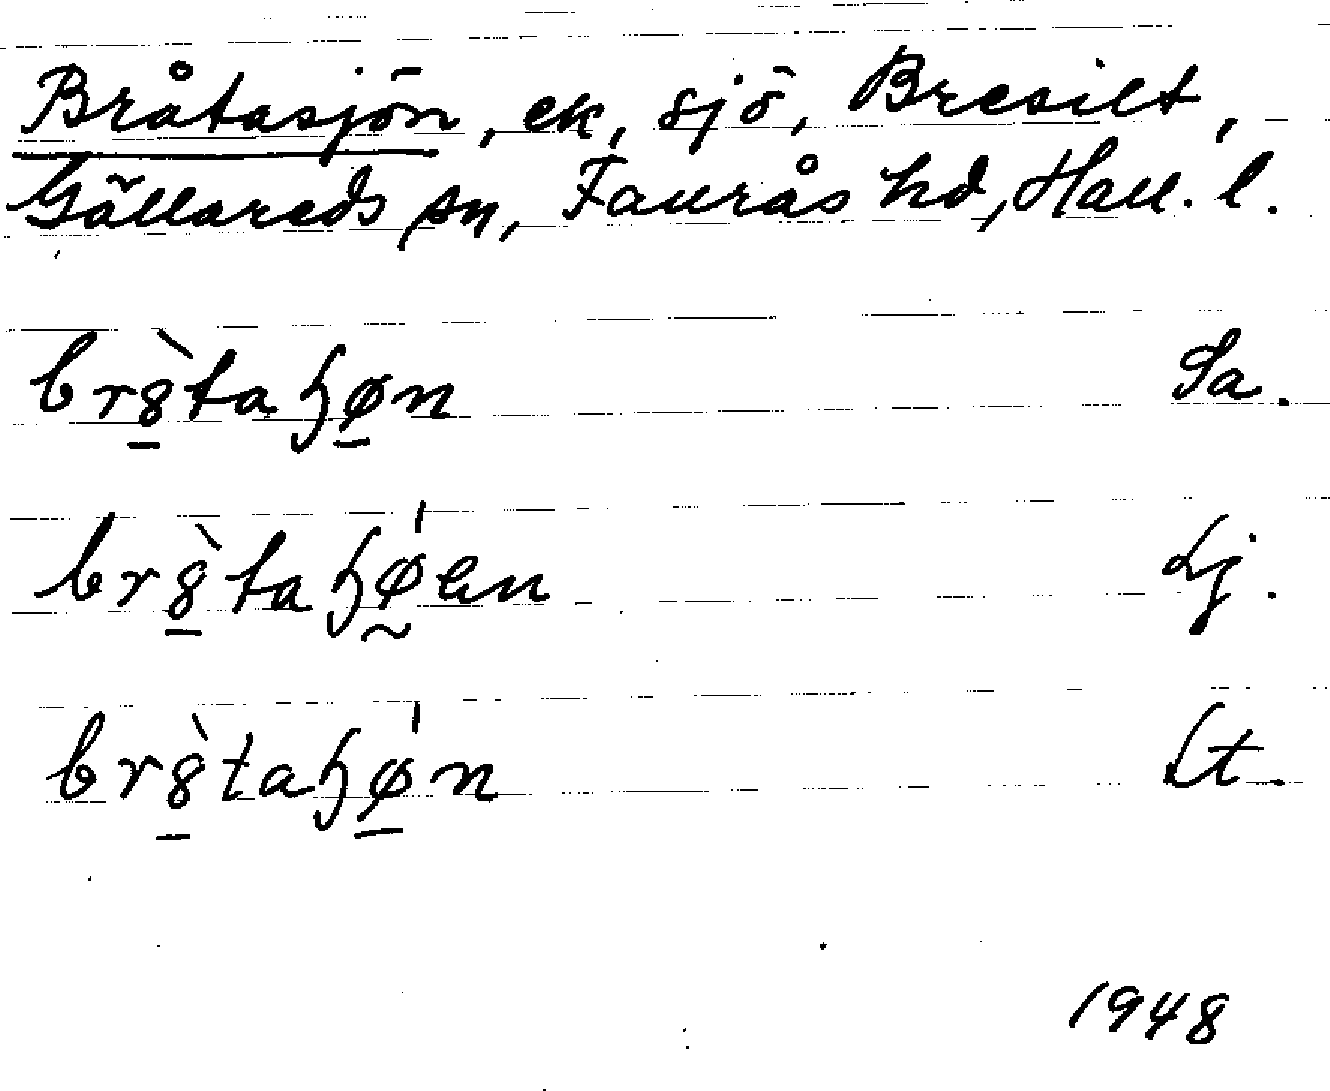 Bråtasjön, ek, sjö, Bresilt,
Gällareds sn, Faurås hd, Hall. l.
br8̱̀taɧø̱n Sa.
br8̱̀taɧǿ̰en Lj.
br8̱̀taɧǿ̱n Lt.
1948